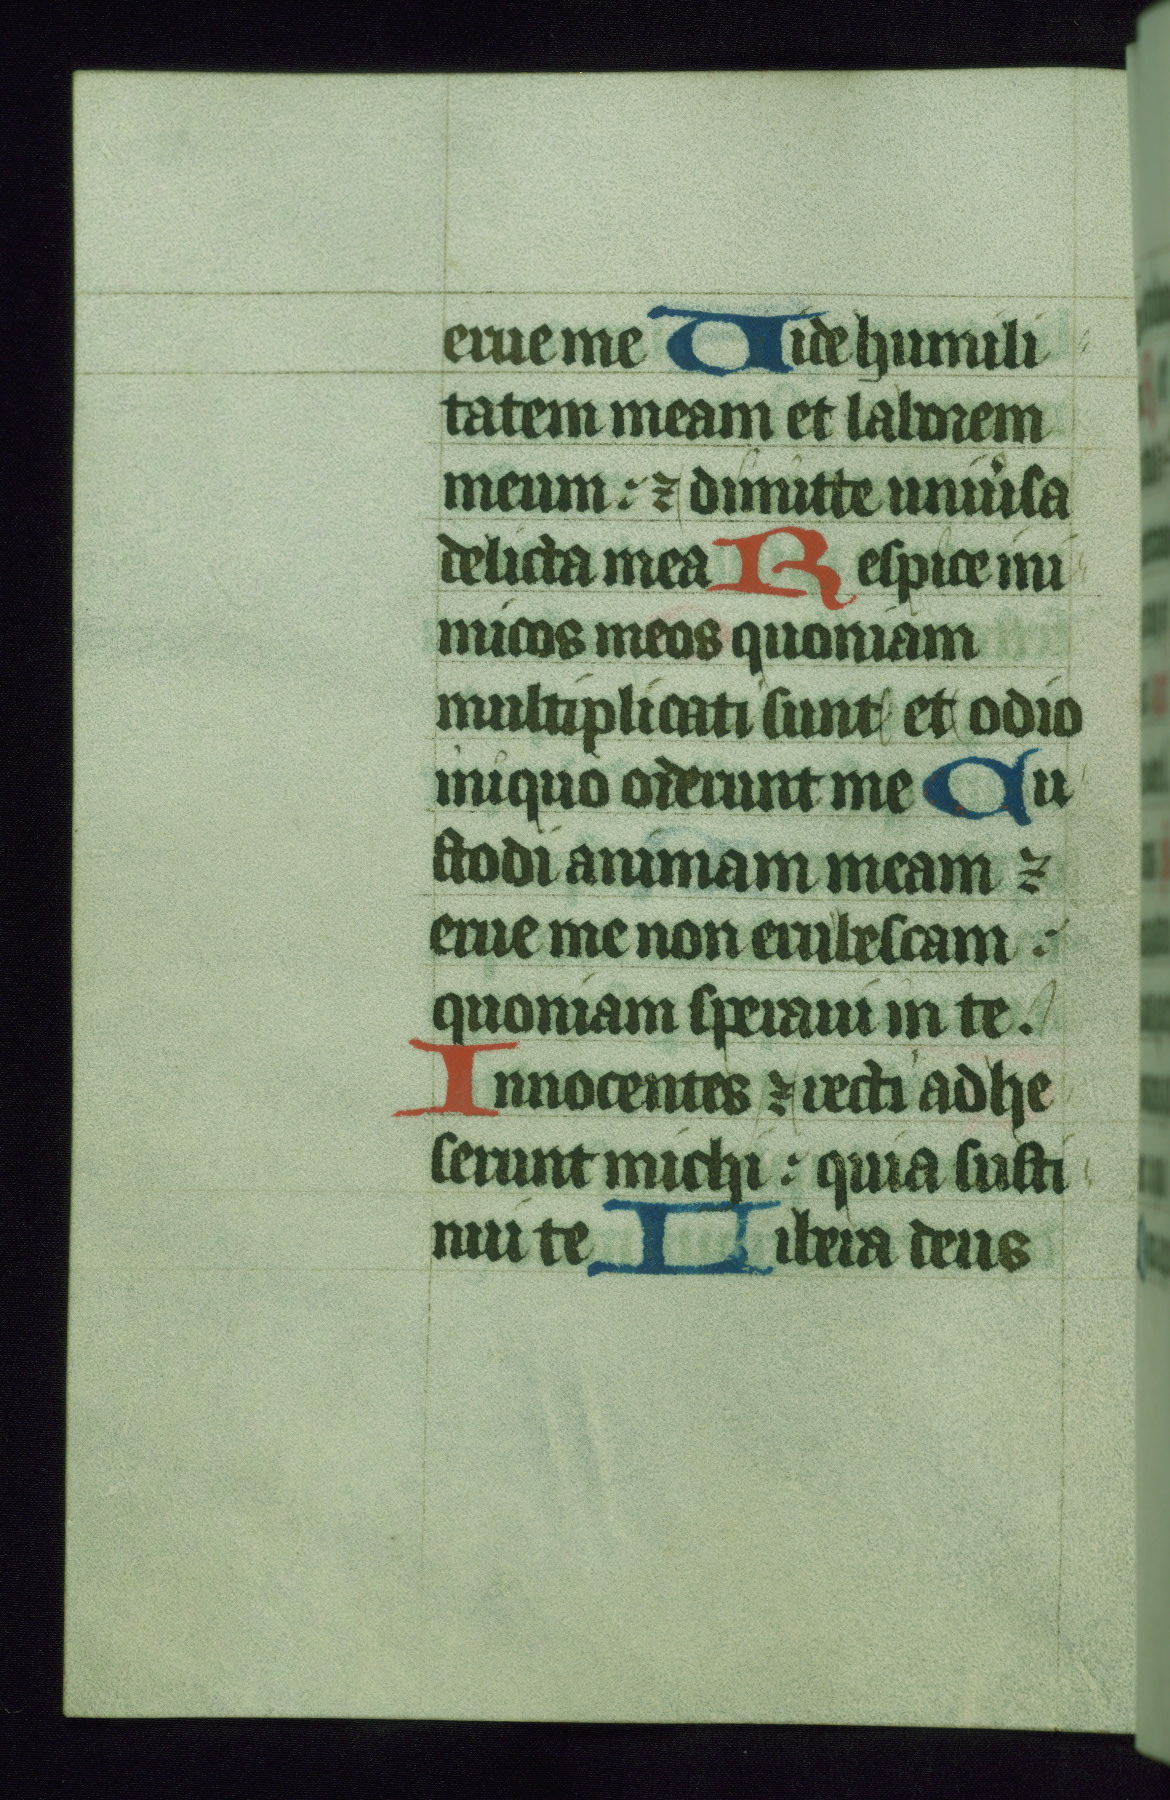 erue me Uide humili
tatem meam et laborem
meum : ⁊ dimitte uniu'sa
delicta mea Respice ini
micos meos quoniam
multiplicati sunt et odio
iniquo oderunt me Cu
stodi animam meam ⁊
erue me non erubescam :
quoniam speraui in te .
Innocentes ⁊ recti adhe
serunt michi : quia susti
nui te Libera deus